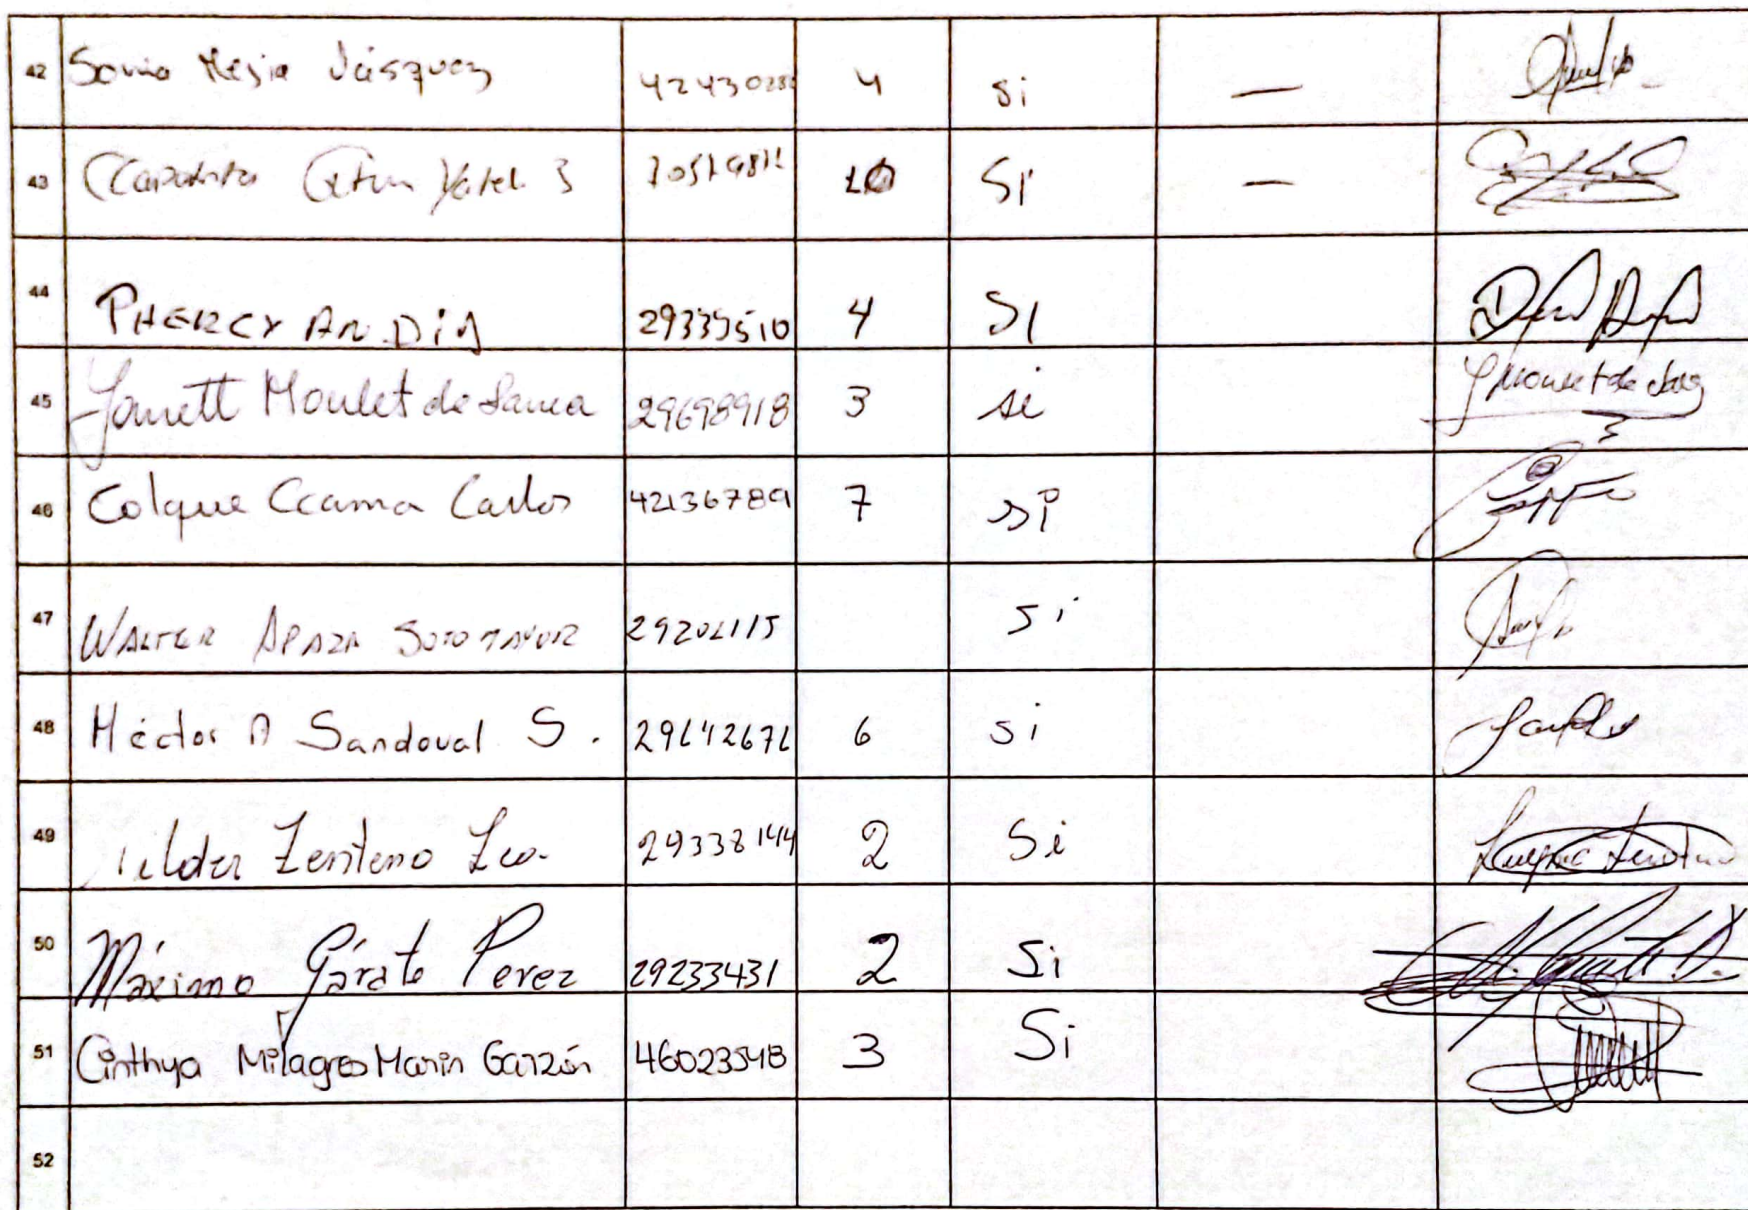 42 Sonia Mejia Vásquez 4 si —
43 10 Si —
44 PHERCY ANDIA 29335510 4 SI
45 Moulet de 29698918 3 si
46 Colque Ccama Carlos 42136789 7 si
47 WALTER APAZA SOTOMAYOR 29202115 si
48 Héctor A Sandoval S. 29642672 6 si
49 Zenteno 29338144 2 Si
50 Máximo Gárate Perez 29233431 2 Si
51 Cinthya Milagros Marin Garzón 46023548 3 Si
52